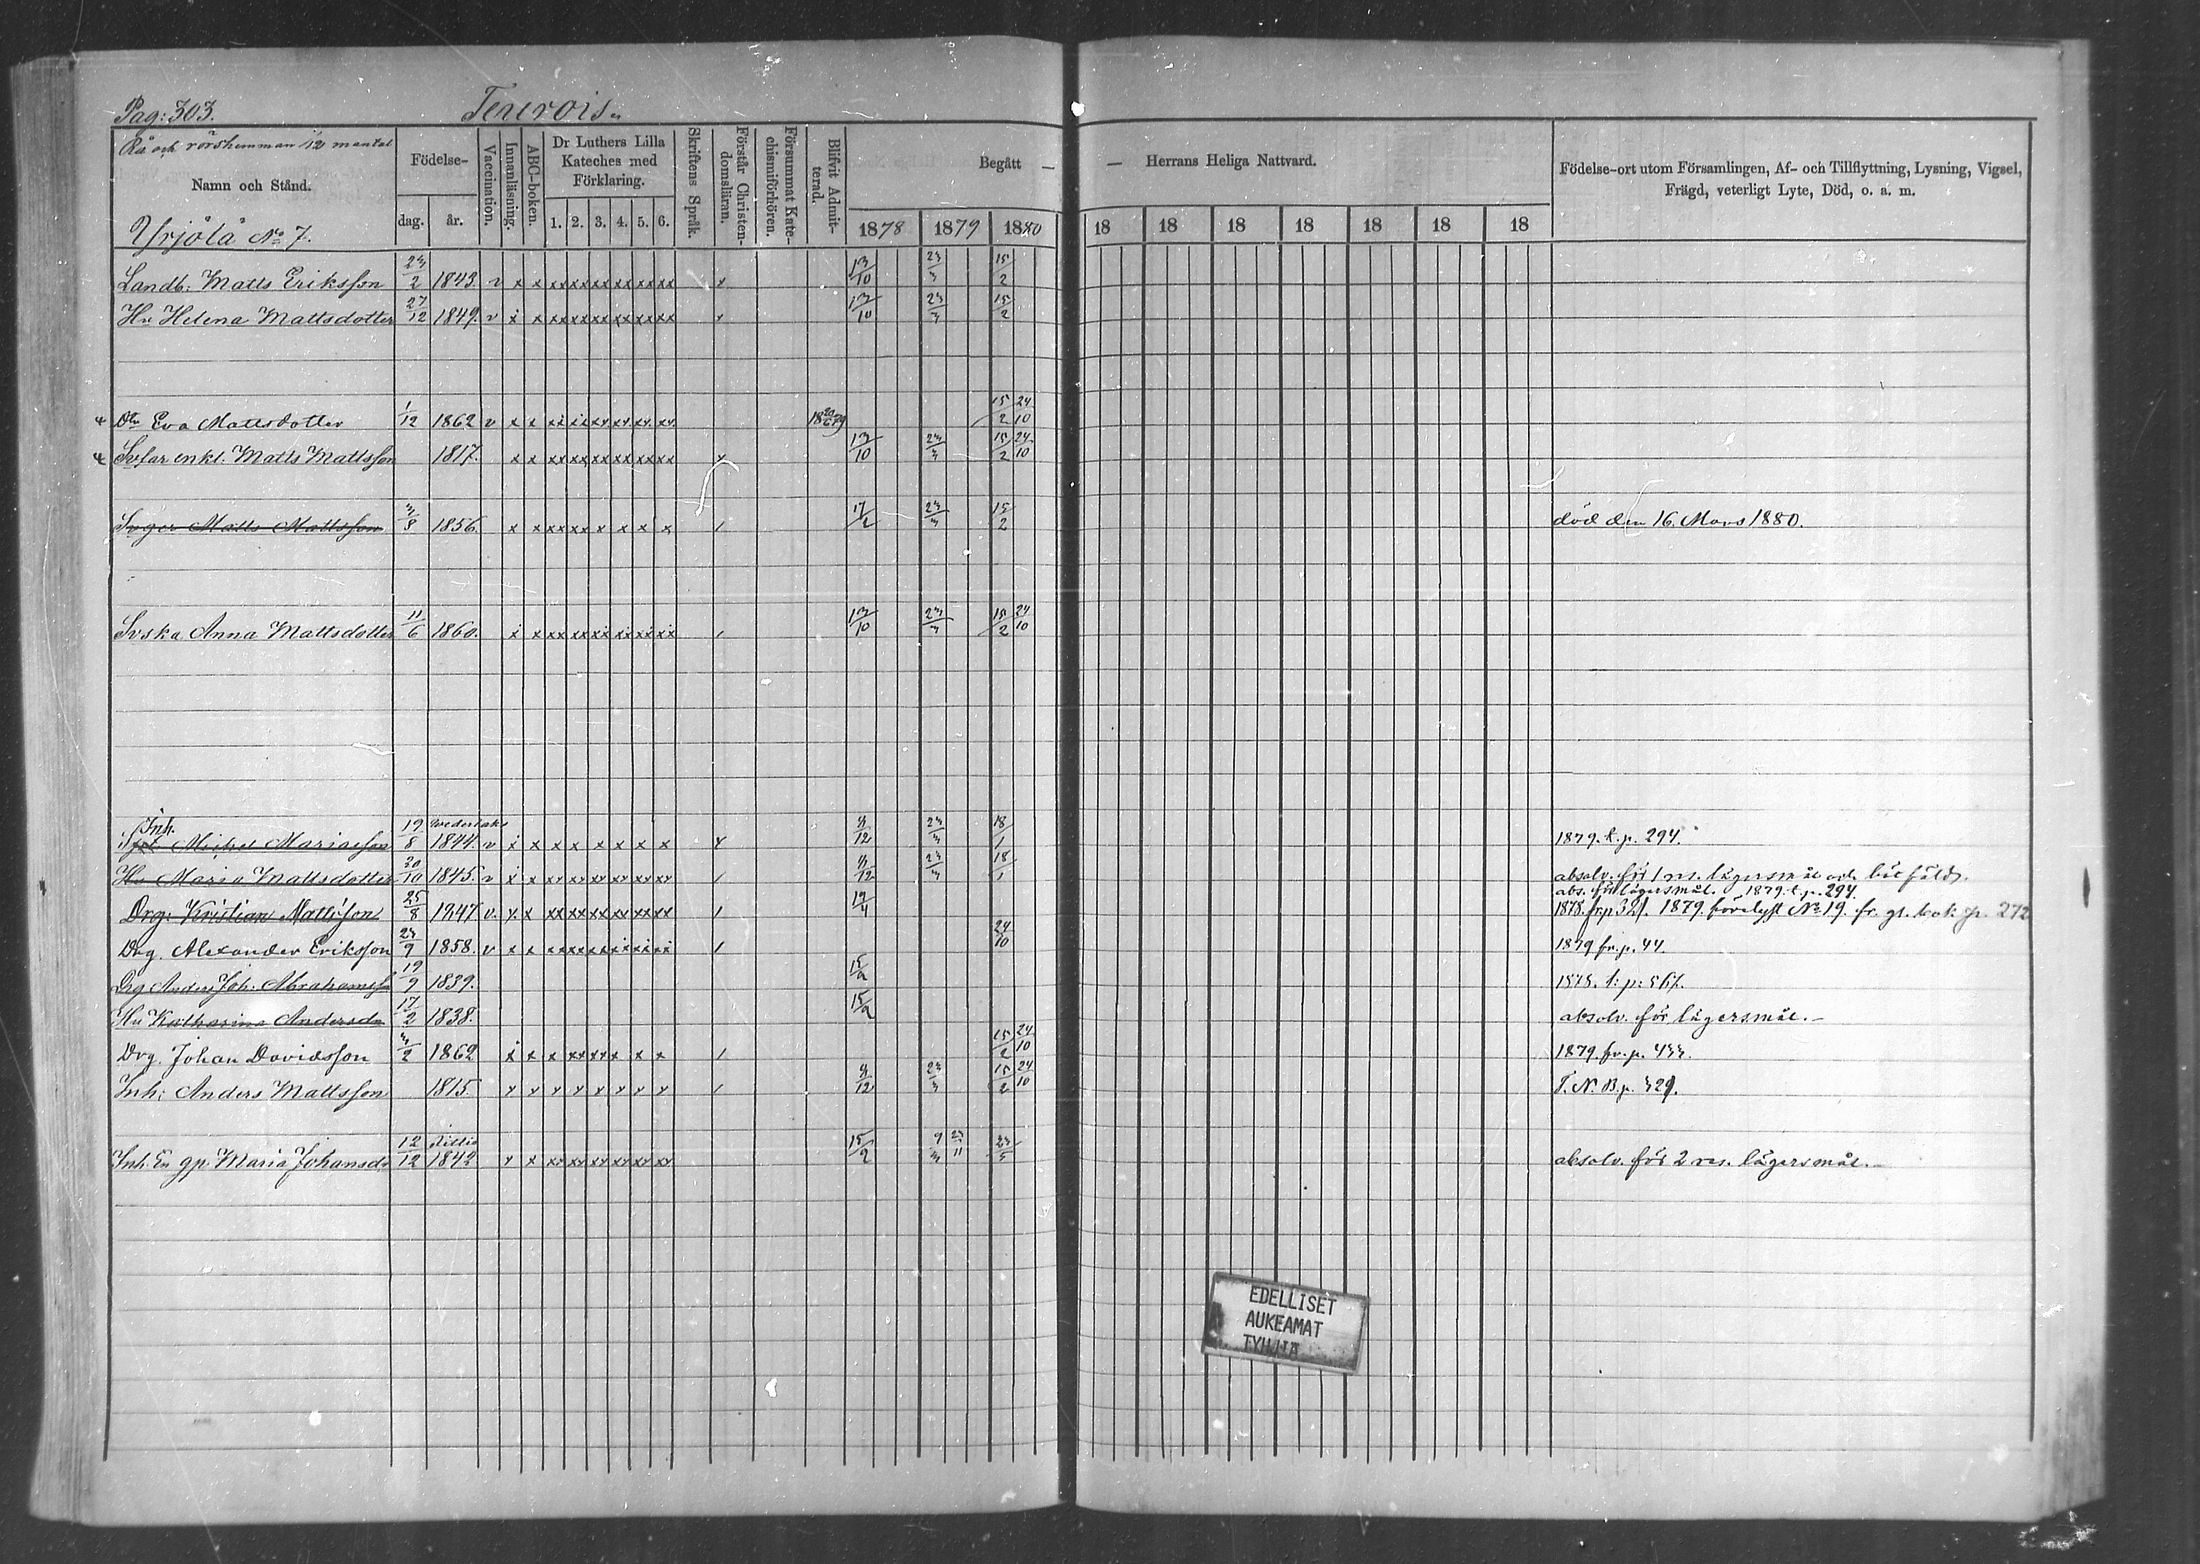 Pag: 303.
Terervois.
Rå och rörshemman 1/2 mantal
Namn och Stånd.
Yrjölä No 7.
Födelse-
dag. år.
Vaccination.
Innanläsning.
ABC-boken.
Dr Luthers Lilla Kateches med Förklaring.
1. 2. 3. 4. 5. 6.
Skriftens Språk.
Förstår Christendomsläran.
Försummat Katechismiförhören.
Blifvit Admitterad.
Begått — — Herrans Heliga Nattvard.
1878 1879 1880 18 18 18 18 18 18 18
Födelse-ort utom Församlingen, Af- och Tillflyttning, Lysning, Vigsel, Frägd, veterligt Lyte, Död, o. a. m.
Landb: Matts Eriksson 23/2 1843. v x x xx xx xx xx xx xx x 13/10 23/3 15/2
Hu Helena Mattsdotter 27/12 1849. v x x xx xx xx xx xx xx x 13/10 23/3 15/2
Dtr Eva Mattsdotter 1/12 1862 v x x xx xx xx xx xx xx 15/2 24/10
Svfar enkl. Matts Mattsson 1817. x x xx xx xx xx xx xx x 13/10 23/3 15/2 24/10
Svger Matts Mattsson 3/8 1856. x x xx xx x x x x / 17/2 23/3 15/2 död den 16. Mars 1880.
Svska Anna Mattsdotter 11/6 1860. x x xx xx xx xx xx xx / 13/10 23/3 15/2 24/10
Inh.
Michel Mariaeson 19/8 1844. v x x x x x x x x x 8/12 23/3 18/1 1879. t. p. 294.
Hu Maria Mattsdotter 20/10 1845. v x x xx xx xx xx xx xx / 8/12 23/3 18/1 absolv. för 1 res. lägersmål och
abs. för lägersmål. 1879. t. p. 294.
Drg: Kristian Mattsson 25/8 1847 v. x x xx xx xx xx xx xx / 14/4 1878. fr. p 321. 1879. No 19. fr. p. 272
Drg. Alexander Eriksson 23/9 1858. v x x xx xx xx xx xx xx / 24/10 1879 fr. p. 44.
Drg Anders Joh. Abrahamss 19/9 1839. 15/2 1878. t: p: 567.
Hu Katharina Andersdr 17/2 1838. 15/2 absolv. för lägersmål.—
Drg. Johan Davidsson 3/2 1862 x x x xx xx x x x / 15/2 24/10 1879. fr. p. 433.
Inh: Anders Mattsson 1815. x x x x x x x x / 8/12 23/3 15/2 24/10 T. N. B. p. 329.
Inh. En gp. Maria Johansdr 12/12 1842 x x xx xx xx xx xx xx 15/2 9/3 23/11 23/5 absolv. för 2 res. lägersmål.—
EDELLISET
AUKEAMAT
TYHJIÄ